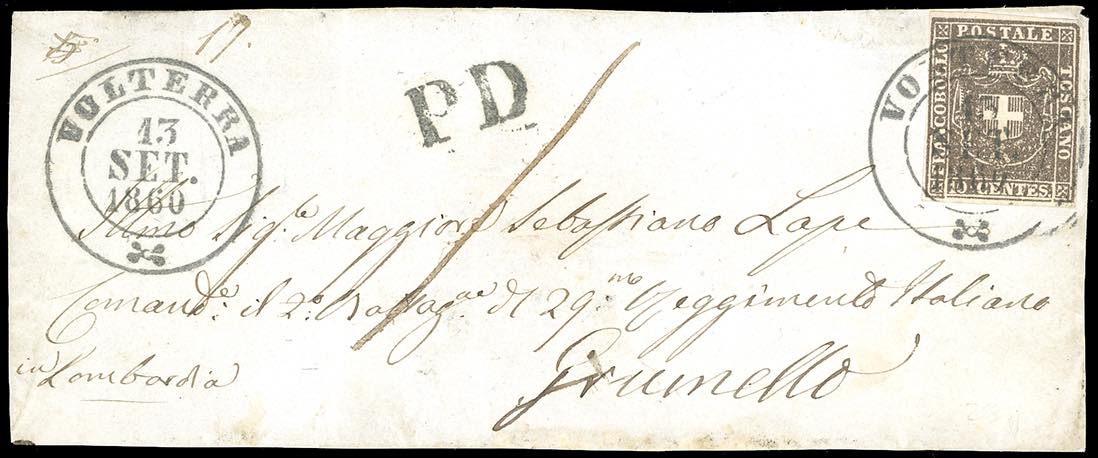 17.
VOLTERRA
13
SET.
1860
PD
FRANCOBOLLO POSTALE TOSCANO
CENTES.
VO
Illmo Sig.e Maggiore Sebassiano Lape
Comand.e il 2.o Battag.ne del 29.mo Reggimento Italiano
in Lombardia
Grumello